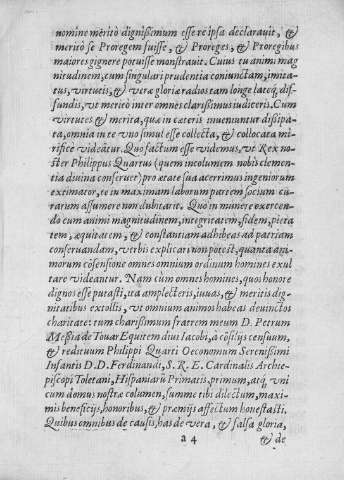 nomine meritò dignissimum esse re ipsa declarauit, &
meritò se Proregem fuisse, & Proreges, & Proregibus
maiores gignere potuisse monstrauit. Cuius tu animi mag
nitudinem, cum singulari prudentia coniunctam, imita-
tus, virtutis, & veræ gloriæ radios tam longe lateq́; dif-
fundis, vt meritò inter omnes clarissimus iudiceris. Cum
virtutes & merita, quæ in cæteris inueniuntur dissipa-
ta, omnia in te vno simul esse collecta, & collocata mi-
rifice videatur. Quo factum esse videmus, vt Rex no-
ster Philippus Quartus (quem incolumem nobis clemen-
tia diuina conseruet) pro ætate sua acerrimus ingeniorum
extimator, te in maximam laborum partem socium cu-
rarum assumere non dubitarit. Quo in munere exercen-
do cum animi magnitudinem, integritatem, fidem, pieta
tem, æquitatem, & constantiam adhibeas ad patriam
conseruandam, verbis explicari non potest, quanta ani-
morum cōsensione omnes omnium ordinum homines exul
tare videantur. Nam cùm omnes homines, quos honore
dignos esse putasti, ita amplecteris, iuuas, & meritis dig-
nitatibus extollis, vt omnium animos habeas deuinctos
charitate: tum charissimum fratrem meum D. Petrum
Messia de Touar Equitem diui Iacobi, à cōsilijs censuum,
& redituum Philippi Quarti Oeconomum Serenissimi
Infantis D. D. Ferdinandi, S. R. E. Cardinalis Archie-
piscopi Toletani, Hispaniarū Primatis, primum, atq́; vni
cum domus nostræ columen, summe tibi dilectum, maxi-
mis beneficijs, honoribus, & præmijs affectum honestasti.
Quibus omnibus de causis, has de vera, & falsa gloria,
a 4 & de